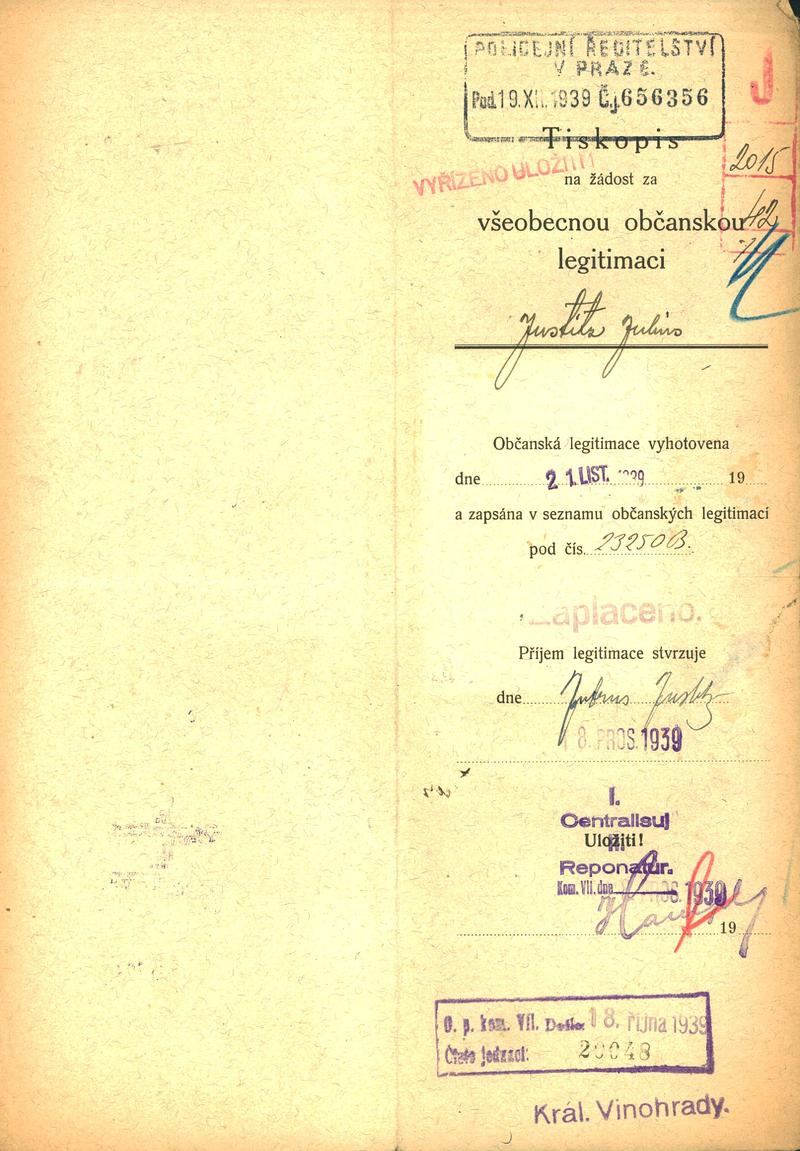 POLICEJNÍ ŘEDITELSTVÍ
V PRAZE.
Pod. 19. XII. 1939 Č.j. 656356
J
Tiskopis
2015
VYŘÍZENO ULOŽITI!
na žádost za
42
všeobecnou občanskou
legitimaci
Justitz Julius
Občanská legitimace vyhotovena
dne 21. LIST. 1939 19
a zapsána v seznamu občanských legitimací
pod čís. 23250B.
Zaplaceno.
Příjem legitimace stvrzuje
dne Julius Justitz
18. PROS. 1939
I.
Centralisuj
Uložiti!
II.
Reponatur.
Kom. VII. dne PROS. 1939
19
O. p. kom. VII. Došlo: 18. října 1939
Číslo jednací: 20048
Král. Vinohrady.